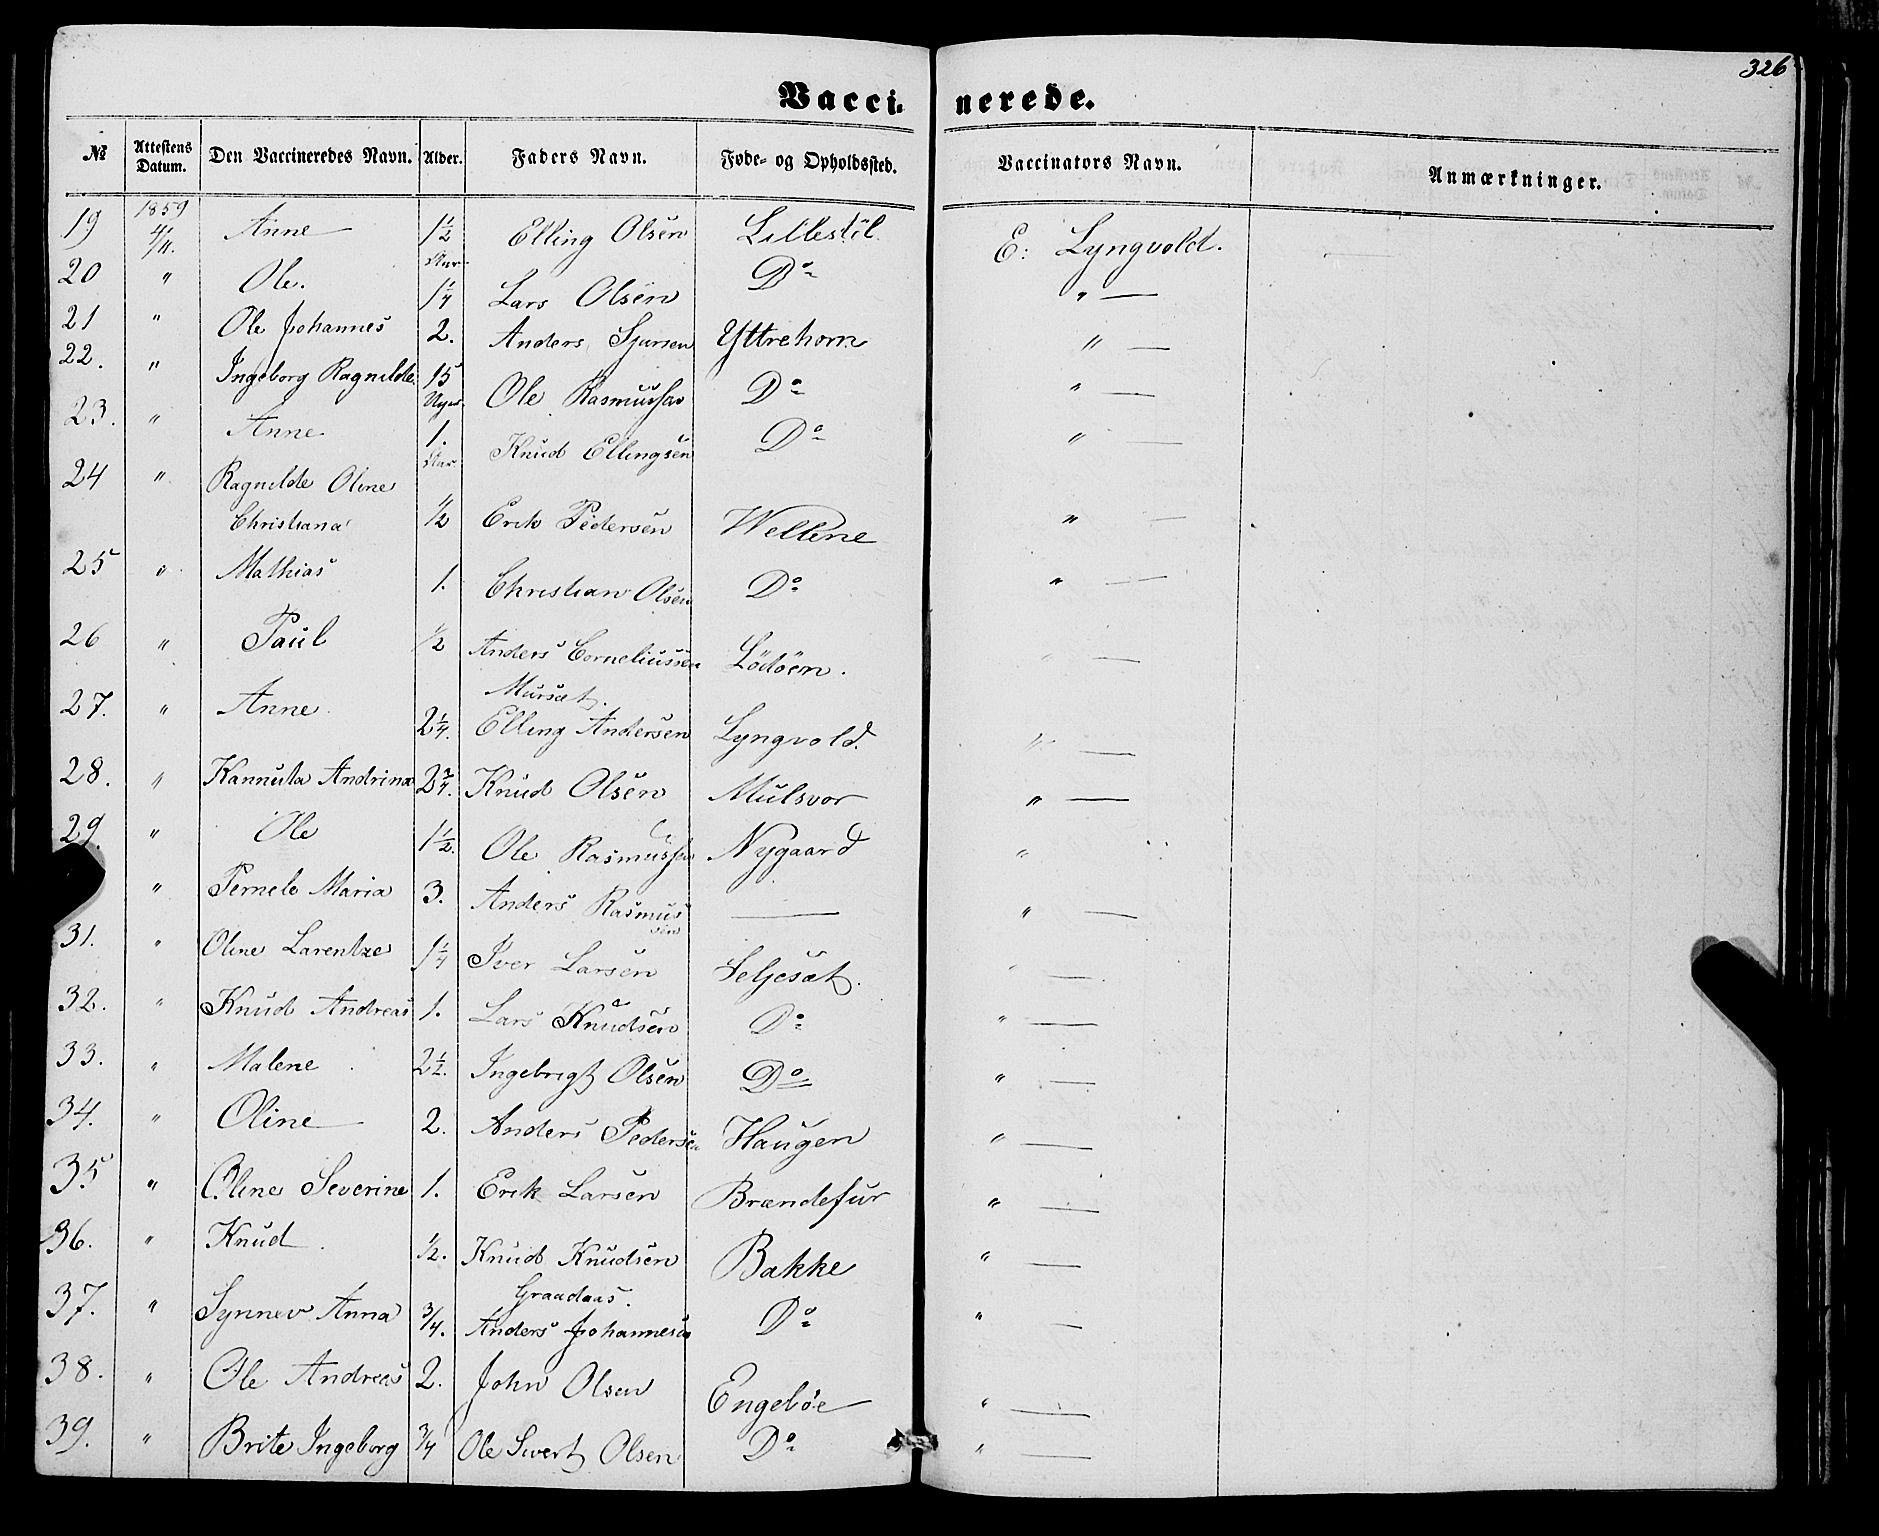 326
Vaccinerede.
№ Attestens Datum. Den Vaccineredes Navn. Alder. Faders Navn. Føde- og Opholdssted. Vaccinators Navn. Anmærkninger.
19 1859 4/11. Anne 1½ Aar. Elling Olsen Lillestöl. E: Lyngvold. —
20 " Ole. 1¼ Lars Olsen Do " —
21 " Ole Johannes 2. Anders Sjursen Yttrehorn " —
22. " Ingeborg Ragnilde 15 Uger. Ole Rasmussen Do " —
23. " Anne 1. Aar. Knud Ellingsen Do " —
24 " Ragnilde Oline
Christiana ½ Erik Pedersen Wellene " —
25 " Mathias 1. Christian Olsen Do " —
26 " Paul ½ Anders Corneliussen Lödöen. " —
Mursæt.
27. " Anne 2¼. Elling Andersen Lyngvold. " —
28. " Kannuta Andrina 2¾. Knud Olsen Mulsvor " —
29. " Ole 1½. Ole Rasmussen Nygaard "
" Pernele Maria 3. Anders Rasmussen — " —
31. " Oline Larentze 1¼ Iver Larsen Seljesæt. " —
32. " Knud Andreas 1. Lars Knudsen Do " —
33. " Malene 2½. Ingebrigt Olsen Do " —
34. " Oline 2. Anders Pedersen Haugen " —
35 " Oline Severine 1. Erik Larsen Brandefur " —
36. " Knud ½. Knud Knudsen Bakke " —
Graadaas.
37. " Synnev Anna ¾. Anders Johannesen Do " —
38. " Ole Andreas 2. John Olsen Engeböe " —
39. " Brite Ingeborg ¾ Ole Sivert Olsen Do " —